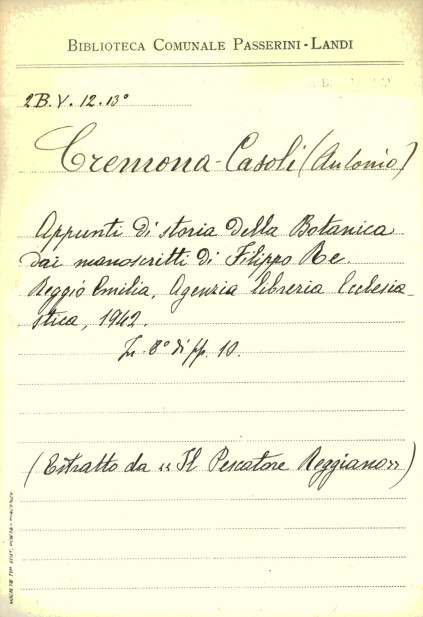 BIBLIOTECA COMUNALE PASSERINI-LANDI
2B.V.12.13°
Cremona-Casoli (Antonio)
Appunti di storia della Botanica
dai manoscritti di Filippo Re.
Reggio Emilia, Agenzia libreria Ecclesia-
stica, 1942.
In 8° di pp. 10.
(Estratto da « Il Pescatore Reggiano »)